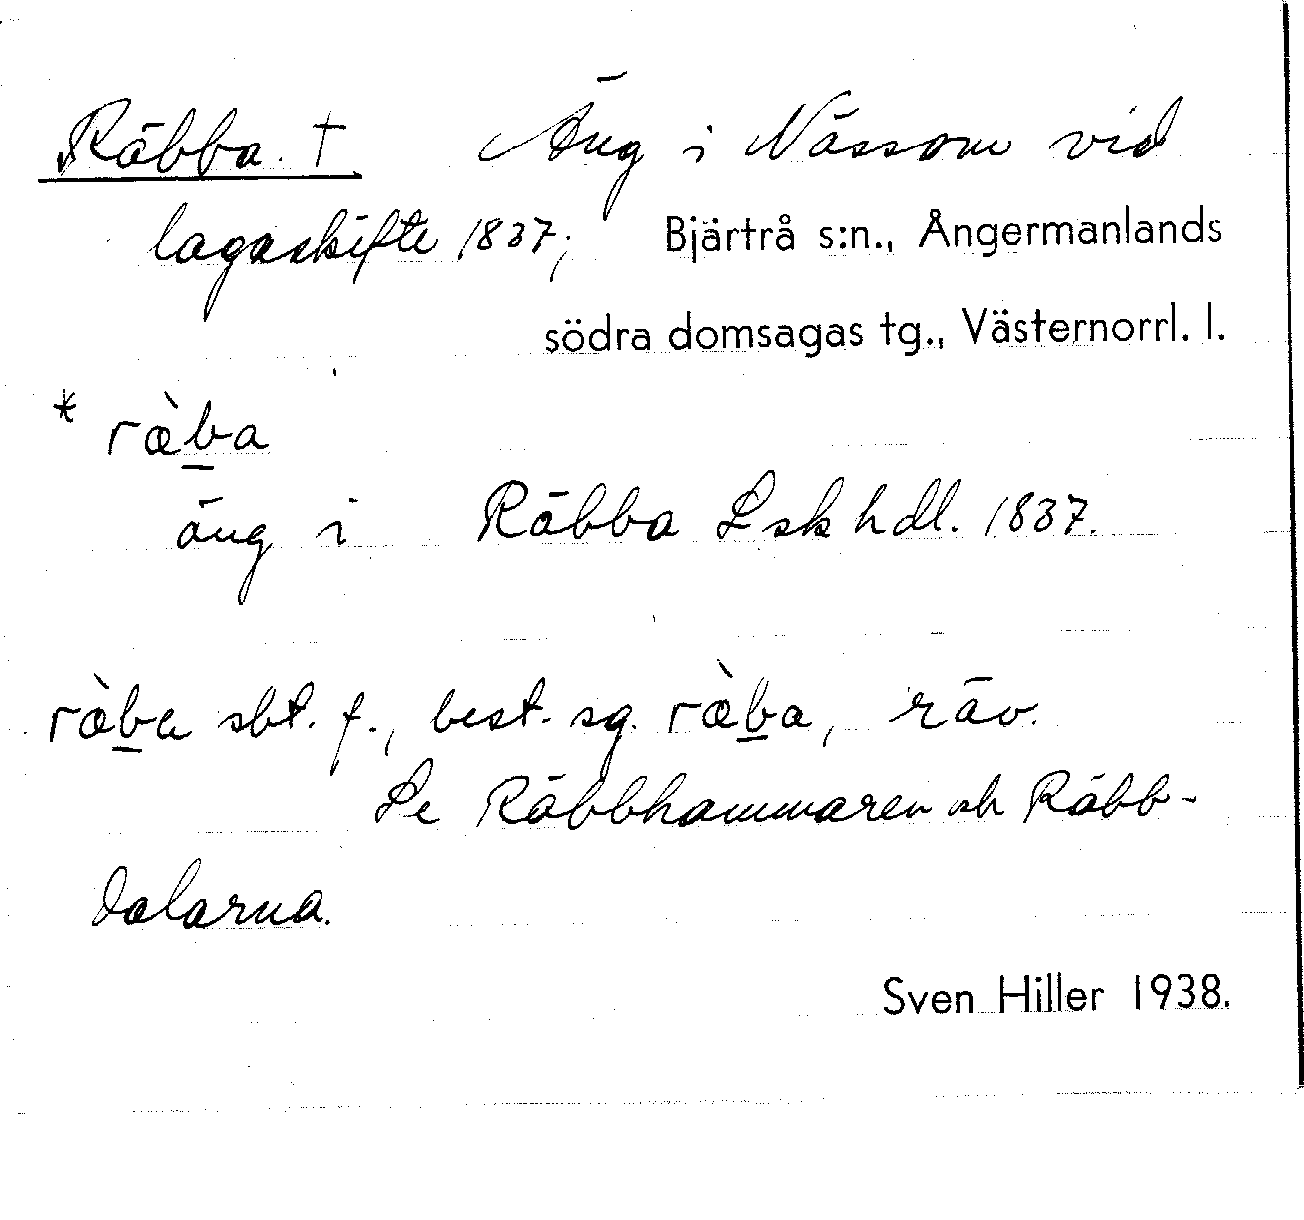 Räbba. † Äng i Nässom vid
lagaskifte 1837; Bjärtrå s:n., Ångermanlands
södra domsagas tg., Västernorrl. l.
* ræ̀b̲a
äng i Räbba Lskhdl. 1837.
ræ̀b̲a sbt. f., best. sg. ræ̀b̲a, räv.
Se Räbbhammaren och Räbb-
dalarna.
Sven Hiller 1938.